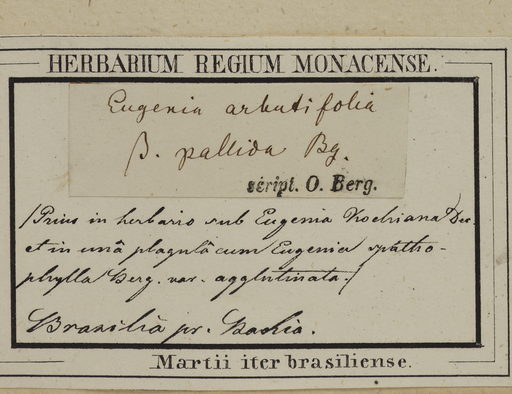 HERBARIUM REGIUM MONACENSE.
Eugenia arbutifolia
β. pallida Bg.
script. O. Berg.
/Prius in herbario sub Eugenia Kochiana Dec.
et in unâ plagulâ cum Eugenia spatho-
phylla Berg. var. agglutinata./
Brasiliâ pr. Bachia.
Martii iter brasiliense.